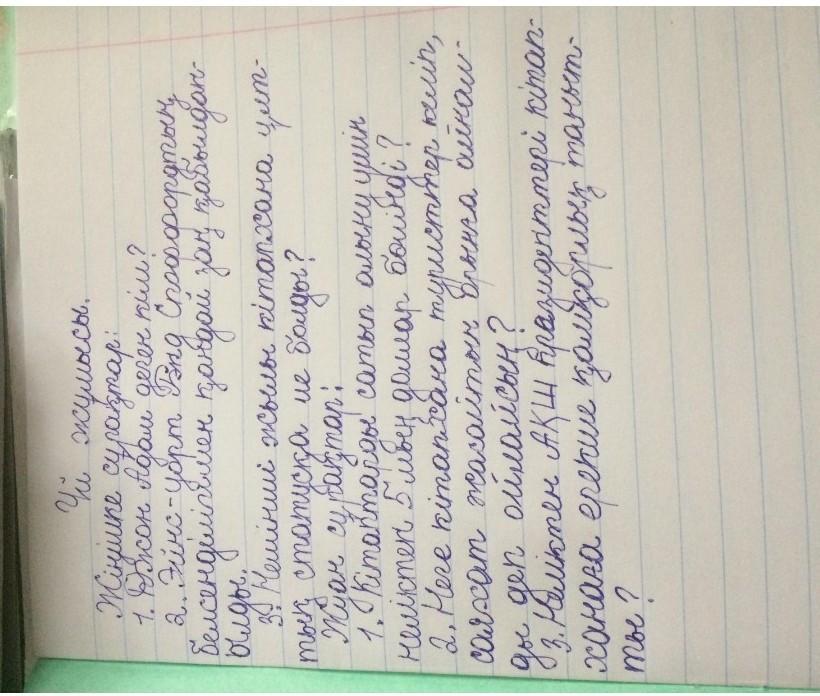 Үй жұмысы.
Жіңішке сұрақтар:
1. Джон Адам деген кім?
2. Эйнс-уорт Рэнд Споффордтың
белсенділігімен қандай заң қабылдан-
ылды.
3. Нешінші жылы кітапхана ұлт-
тық статусқа ие болды?
Жуан сұрақтар:
1. Кітаптарды сатып алыну үшін
неліктен 5 мың доллар бөлінді?
2. Неге кітапхана туристтер келіп,
саяхат жасайтын орынға айнал-
ды деп ойлайсың?
3. Неліктен АҚШ президенттері кітап-
ханаға ерекше қамқорлық таныт-
ты?